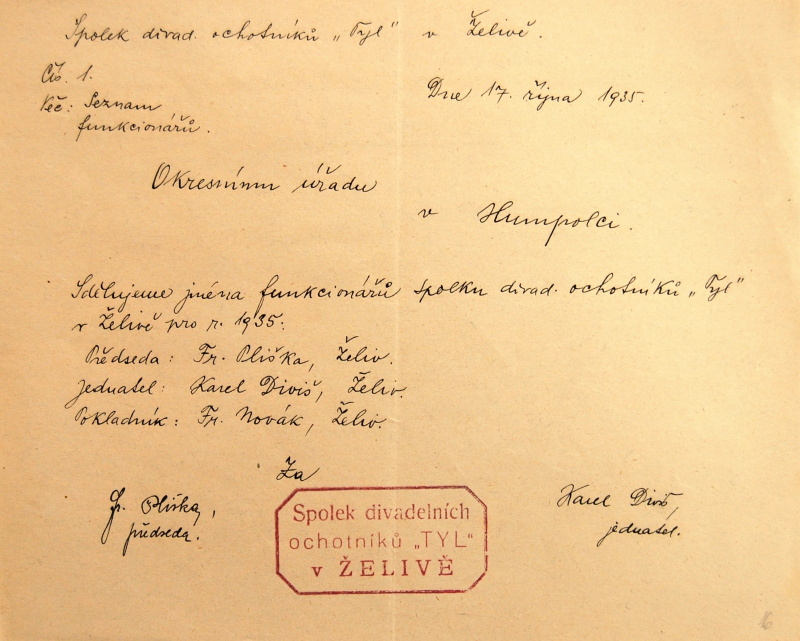 Spolek divad. ochotníků „Tyl" v Želivě.
Čís. 1.
Dne 17. října 1935.
Věc: Seznam
funkcionářů.
Okresnímu úřadu
v Humpolci.
Sdělujeme jména funkcionářů spolku divad. ochotníků „Tyl"
v Želivě pro r. 1935:
Předseda: Fr. Pliška, Želiv.
Jednatel: Karel Diviš, Želiv.
Pokladník: Fr. Novák, Želiv.
Za
Fr. Pliška,
předseda.
Spolek divadelních
ochotníků „TYL"
v ŽELIVĚ
Karel Diviš,
jednatel.
16